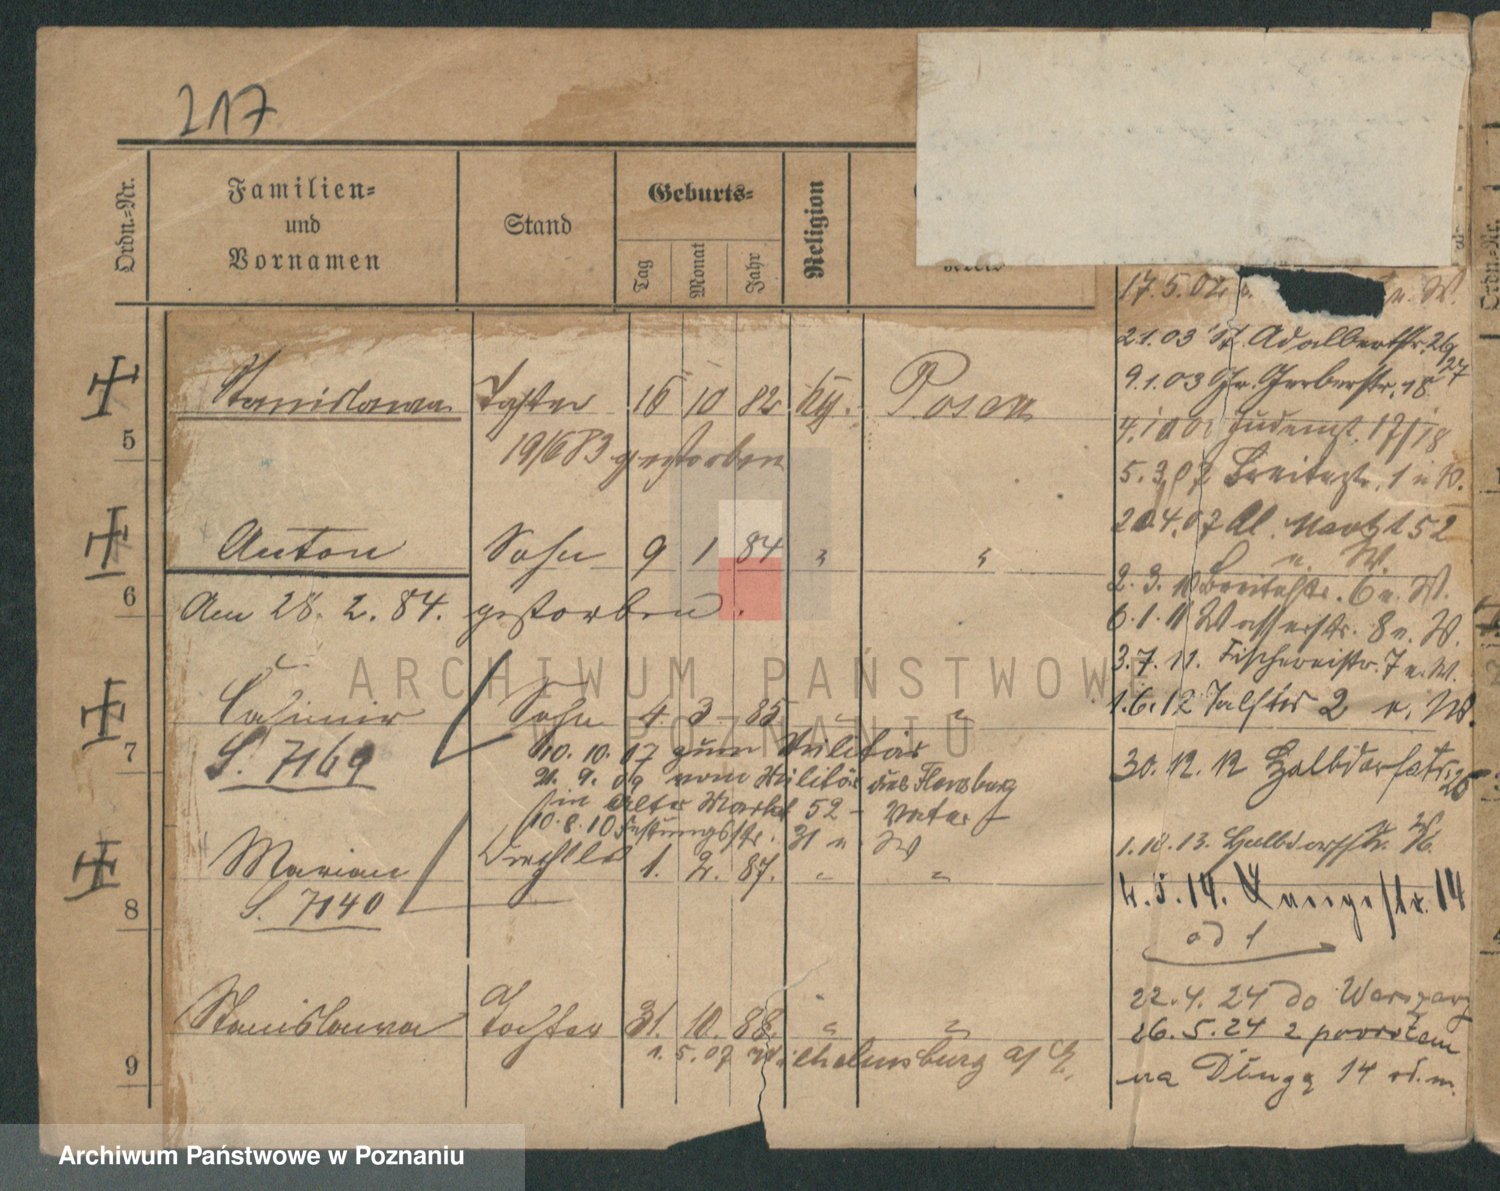 217
Ordn.-Nr.
Familien-
und
Vornamen
Stand
Geburts-
Tag
Monat
Jahr
Religion
17.5.02 u. W.
21.03 St. Adalbertstr. 26/27
9.1.03 Gr. Gerberstr. 18
5 Stanislawa Tochter 16 10 82 Posen
19/6 83 gestorben
17/18
5.3.07 Breitestr. 1 u W.
20.4.07 Al. Markt 52
u. W.
6 Anton Sohn 9 1 84 " "
Am 28. 2. 84. gestorben.
2.3.10 Breitestr. 6 u. W.
6.1.11 Wasserstr. 8 u. W.
3.7.11. Fischereistr. 7 u. W.
1.6.12 2 u. W.
7 Casimir Sohn 4. 3. 85 " "
S. 7169
10. 10. 07 zum Militär
21. 9. 09 vom Militär aus Flensburg
Alter Markt 52 - Vater
10.8.10 Festungsstr. 31 u W
30.12.12 Halbdorfstr. 26
8 Marian 1. 2. 87. " "
S. 7140
1.10.13. Halbdorfstr. 16.
4.5.14. Langestr. 14
od 1
9 Stanislawa Tochter 31. 10. 88. " "
1. 5. 07 Wilhelmsburg a/ E.
22.4.24 do Warszawy
26.5.24 z powrotem
na Długą 14 od. m.
ARCHIWUM PAŃSTWOWE
W POZNANIU
Archiwum Państwowe w Poznaniu